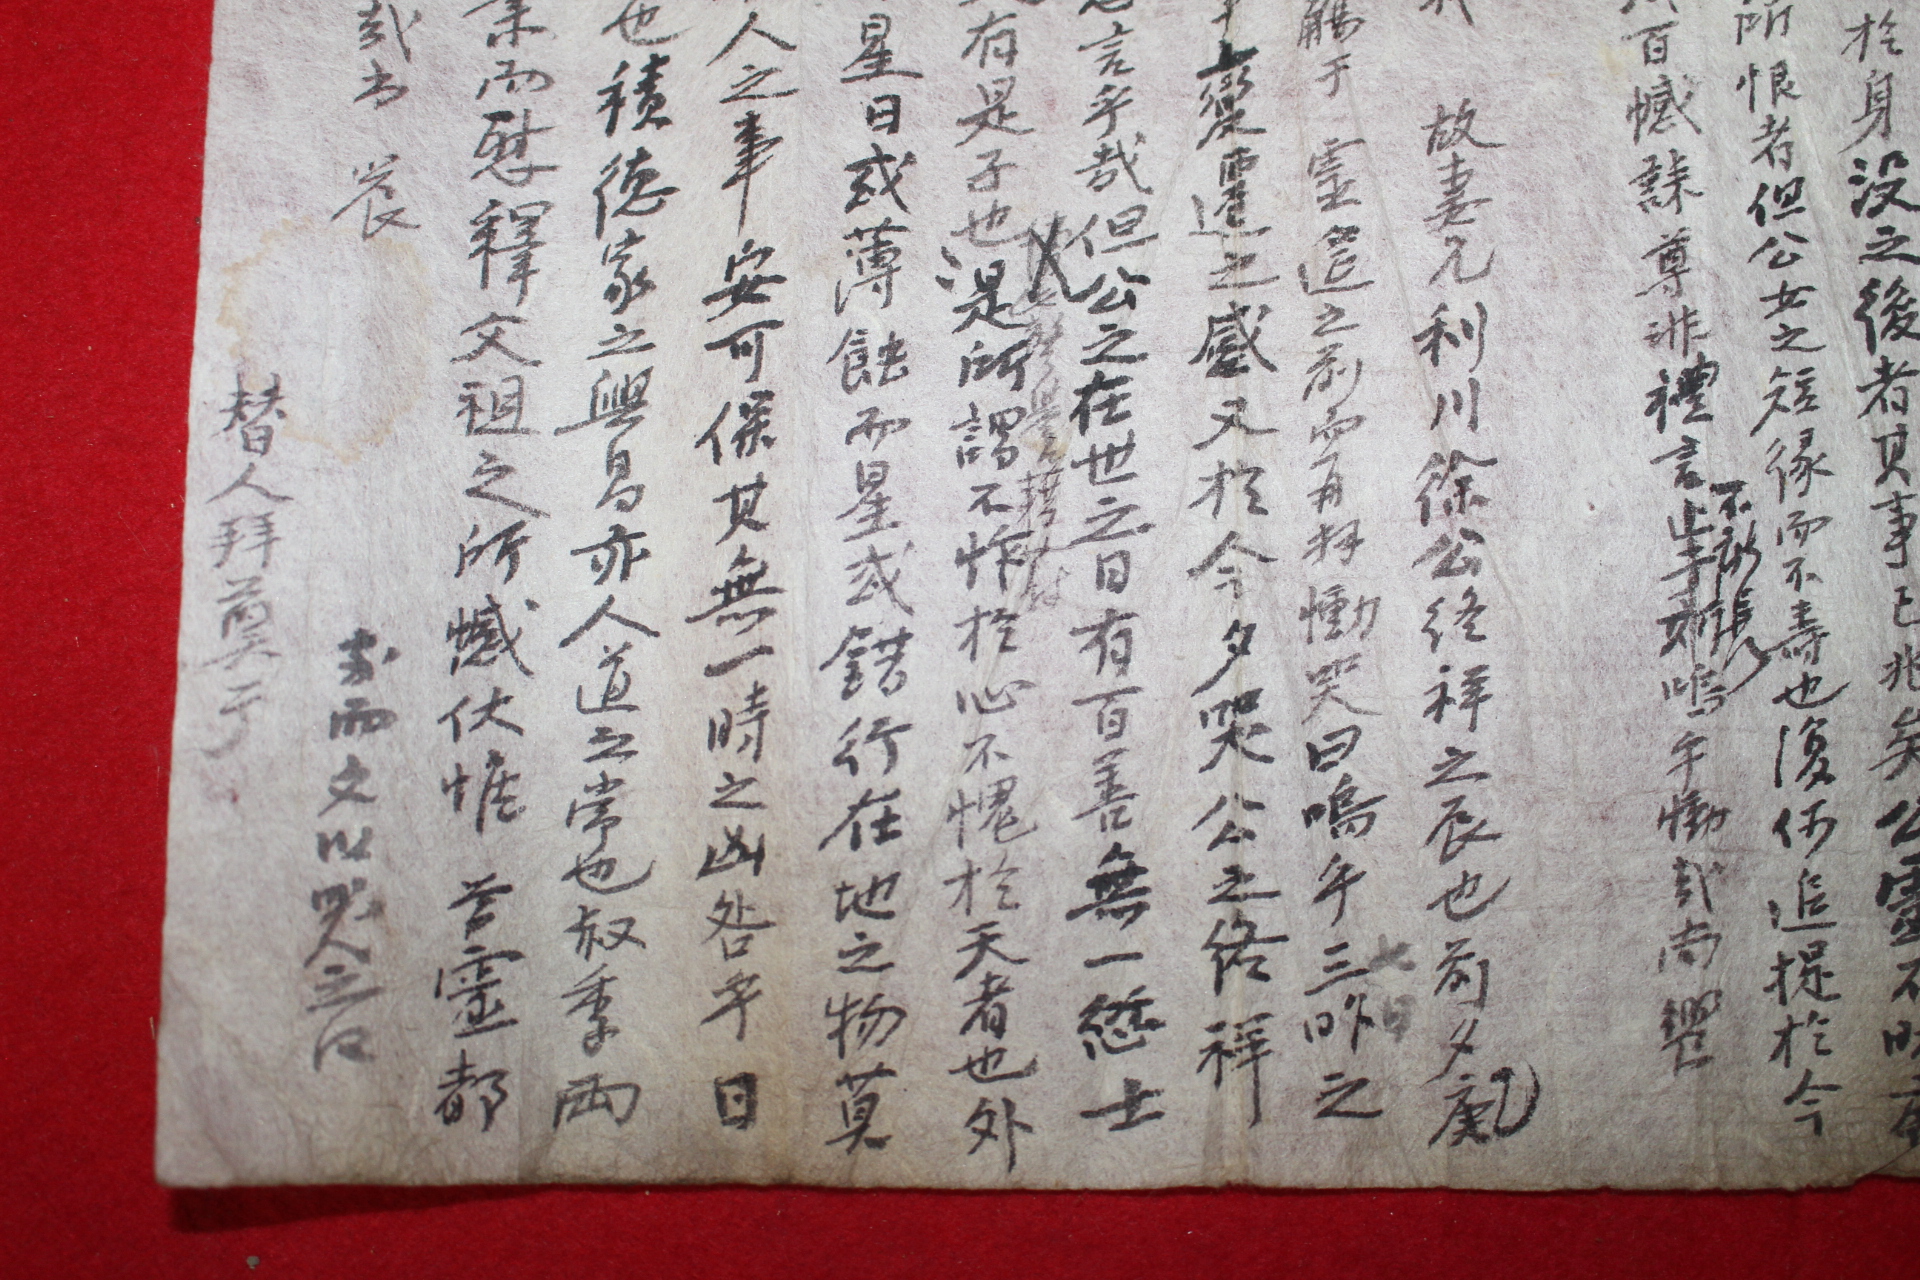 於身沒之後者其事已兆矣公靈不昧
所恨者但公女之短緣而不壽也復何追提於今
百憾誄尊非禮言止
嗚乎慟哉尚饗
故妻兄利川徐公終祥之辰也前夕庚
觴于靈筵之前而再拜慟哭曰嗚乎三昨之
七日
變遷之感又於今夕哭公之終祥
言乎哉但公之在世之日有百善無一愆士
有是子也是所謂不怍於心不愧於天者也外
星日或薄蝕而星或錯行在地之物莫
人之事安可保其無一時之凶咎乎日
也積德家之興昌亦人道之常也叔季兩
而慰釋文祖之所憾伏惟 尊靈都
哉
而文以哭之曰
替人拜奠于